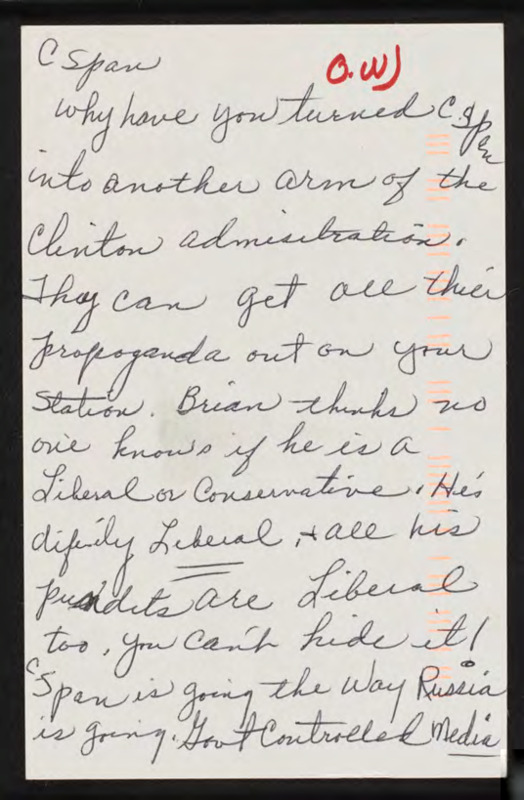 C Span
O.W)
Why have you turned C.Span
into another arm of the
Clinton admisitration.
They can get all thier
Propoganda out on your
Station. Brian thinks no
one knows if he is a
Liberal or Conservative. He's
difinily Liberal, + all his
pundets are Liberal
too, you can't hide it!
C Span is going the Way Russia
is going. Gov't Controlled Media